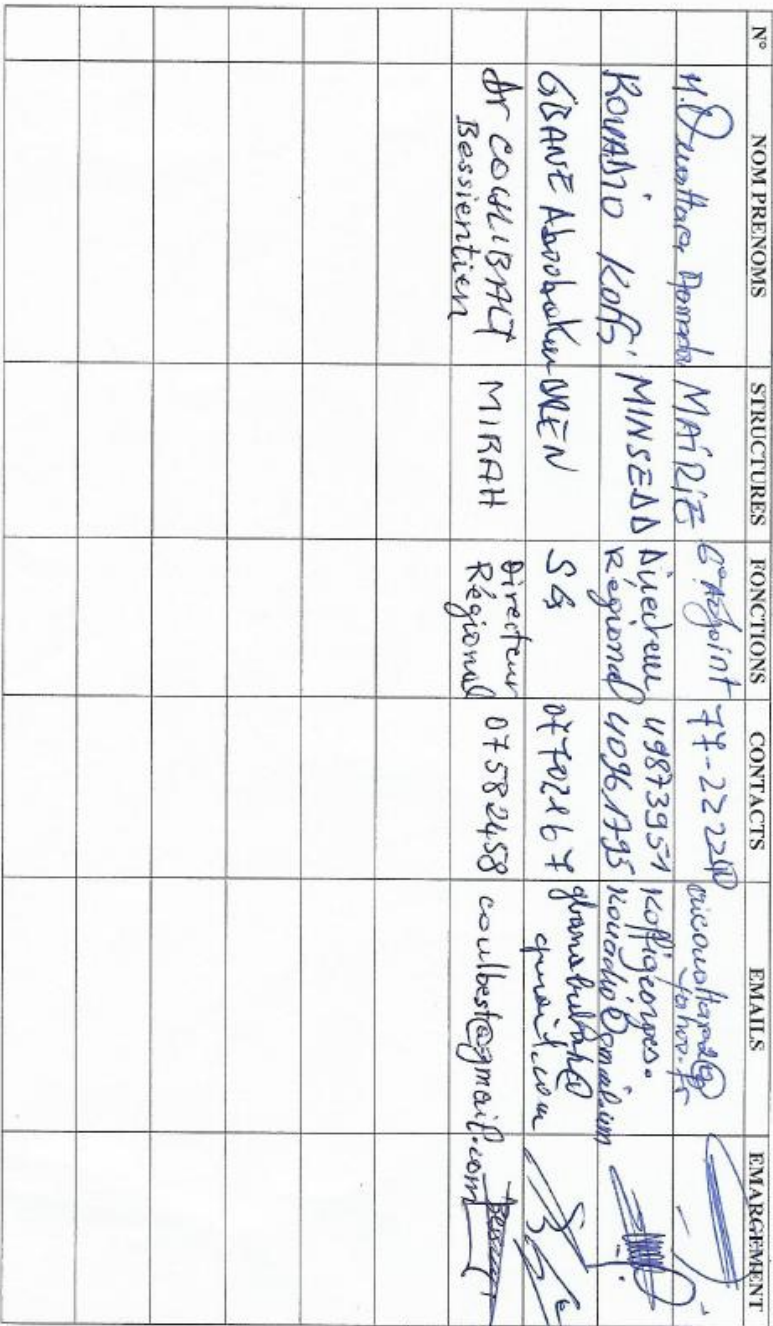 N° NOM PRENOMS STRUCTURES FONCTIONS CONTACTS EMAILS EMARGEMENT
M. Ouattara MAIRIE 6° Adjoint 77-22 22
KOUADIO Koffi MINSEDD Directeur Régional 49873951 40961795 Koffigeorges. Kouadio@gmail.com
GBANE Aboubakar DREN SG 07702167 gmail.com
Dr COULIBALY Bessientien MIRAH Directeur Régional 07582458 coulbest@gmail.com